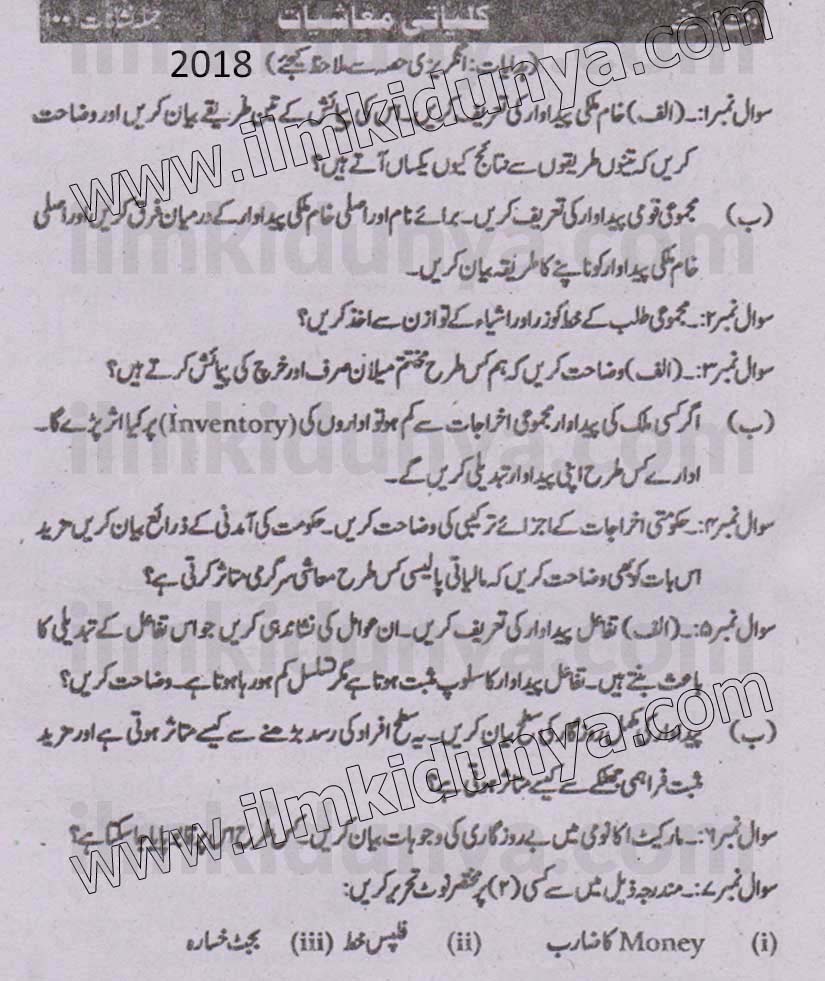 کلیاتی معاشیات
2018 (ہدایات: انگریزی حصہ سے ملاحظہ کیجئے)
سوال نمبر۱:۔ (الف) خام ملکی پیداوار کی تعریف کریں۔ اس کی پیمائش کے تین طریقے بیان کریں اور وضاحت
کریں کہ تینوں طریقوں سے نتائج کیوں یکساں آتے ہیں؟
(ب) مجموعی قومی پیداوار کی تعریف کریں۔ برائے نام اور اصلی خام ملکی پیداوار کے درمیان فرق کریں اور اصلی
خام ملکی پیداوار کو ناپنے کا طریقہ بیان کریں۔
سوال نمبر۲:۔ مجموعی طلب کے خط کو زر اور اشیاء کے توازن سے اخذ کریں؟
سوال نمبر۳:۔ (الف) وضاحت کریں کہ ہم کس طرح مختتم میلان صرف اور خرچ کی پیمائش کرتے ہیں؟
(ب) اگر کسی ملک کی پیداوار مجموعی اخراجات سے کم ہو تو اداروں کی (Inventory) پر کیا اثر پڑے گا۔
ادارے کس طرح اپنی پیداوار تبدیلی کریں گے۔
سوال نمبر۴:۔ حکومتی اخراجات کے اجزائے ترکیبی کی وضاحت کریں۔ حکومت کی آمدنی کے ذرائع بیان کریں مزید
اس بات کو بھی وضاحت کریں کہ مالیاتی پالیسی کس طرح معاشی سرگرمی متاثر کرتی ہے؟
سوال نمبر۵:۔ (الف) تفاعل پیداوار کی تعریف کریں۔ ان عوامل کی نشاندہی کریں جو اس تفاعل کے تبدیلی کا
باعث بنتے ہیں۔ تفاعل پیداوار کا سلوپ مثبت ہوتا ہے مگر تسلسل کم ہو رہا ہوتا ہے۔ وضاحت کریں؟
(ب) پیداوار کی مکمل روزگار کی سطح بیان کریں۔ یہ سطح افراد کی رسد بڑھنے سے کیسے متاثر ہوتی ہے اور مزید
مثبت فراہمی جھٹکے سے کیسے متاثر ہوتی ہے؟
سوال نمبر۶:۔ مارکیٹ اکانومی میں بے روزگاری کی وجوہات بیان کریں۔ کس طرح اس پر قابو پایا جا سکتا ہے؟
سوال نمبر۷:۔ مندرجہ ذیل میں سے کسی (۲) پر مختصر نوٹ تحریر کریں:
(i) Money کا ضارب (ii) فلپس خط (iii) بجٹ خسارہ
www.ilmkidunya.com
www.ilmkidunya.com
ilmkidunya.com
ilmkidunya.com
ilmkidunya.com
ilmkidunya.com